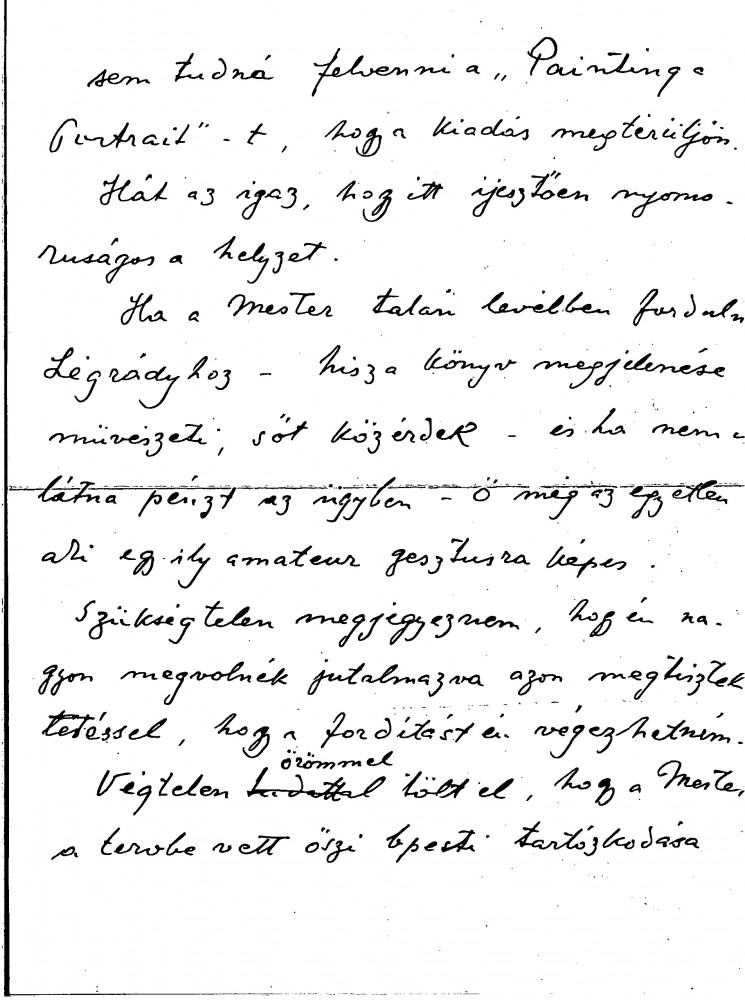 sem tudná felvenni a „Painting a
Portrait" -t, hogy a kiadás megtérüljön.
Hát az igaz, hogy itt ijesztően nyomo-
ruságos a helyzet.
Ha a Mester talán levélben forduln
Légrádyhoz - hisz a könyv megjelenése
müvészeti, sőt közérdek - és ha nem is
látna pénzt az ügyben - Ő még az egyetlen
aki egy ily amateur gesztusra képes.
Szükségtelen megjegyeznem, hogy én na-
gyon megvolnék jutalmazva azon megtisztel
tetéssel, hogy a fordítást én végezhetném.
örömmel
Végtelen tölt el, hogy a Mester
a tervbe vett őszi bpesti tartózkodása